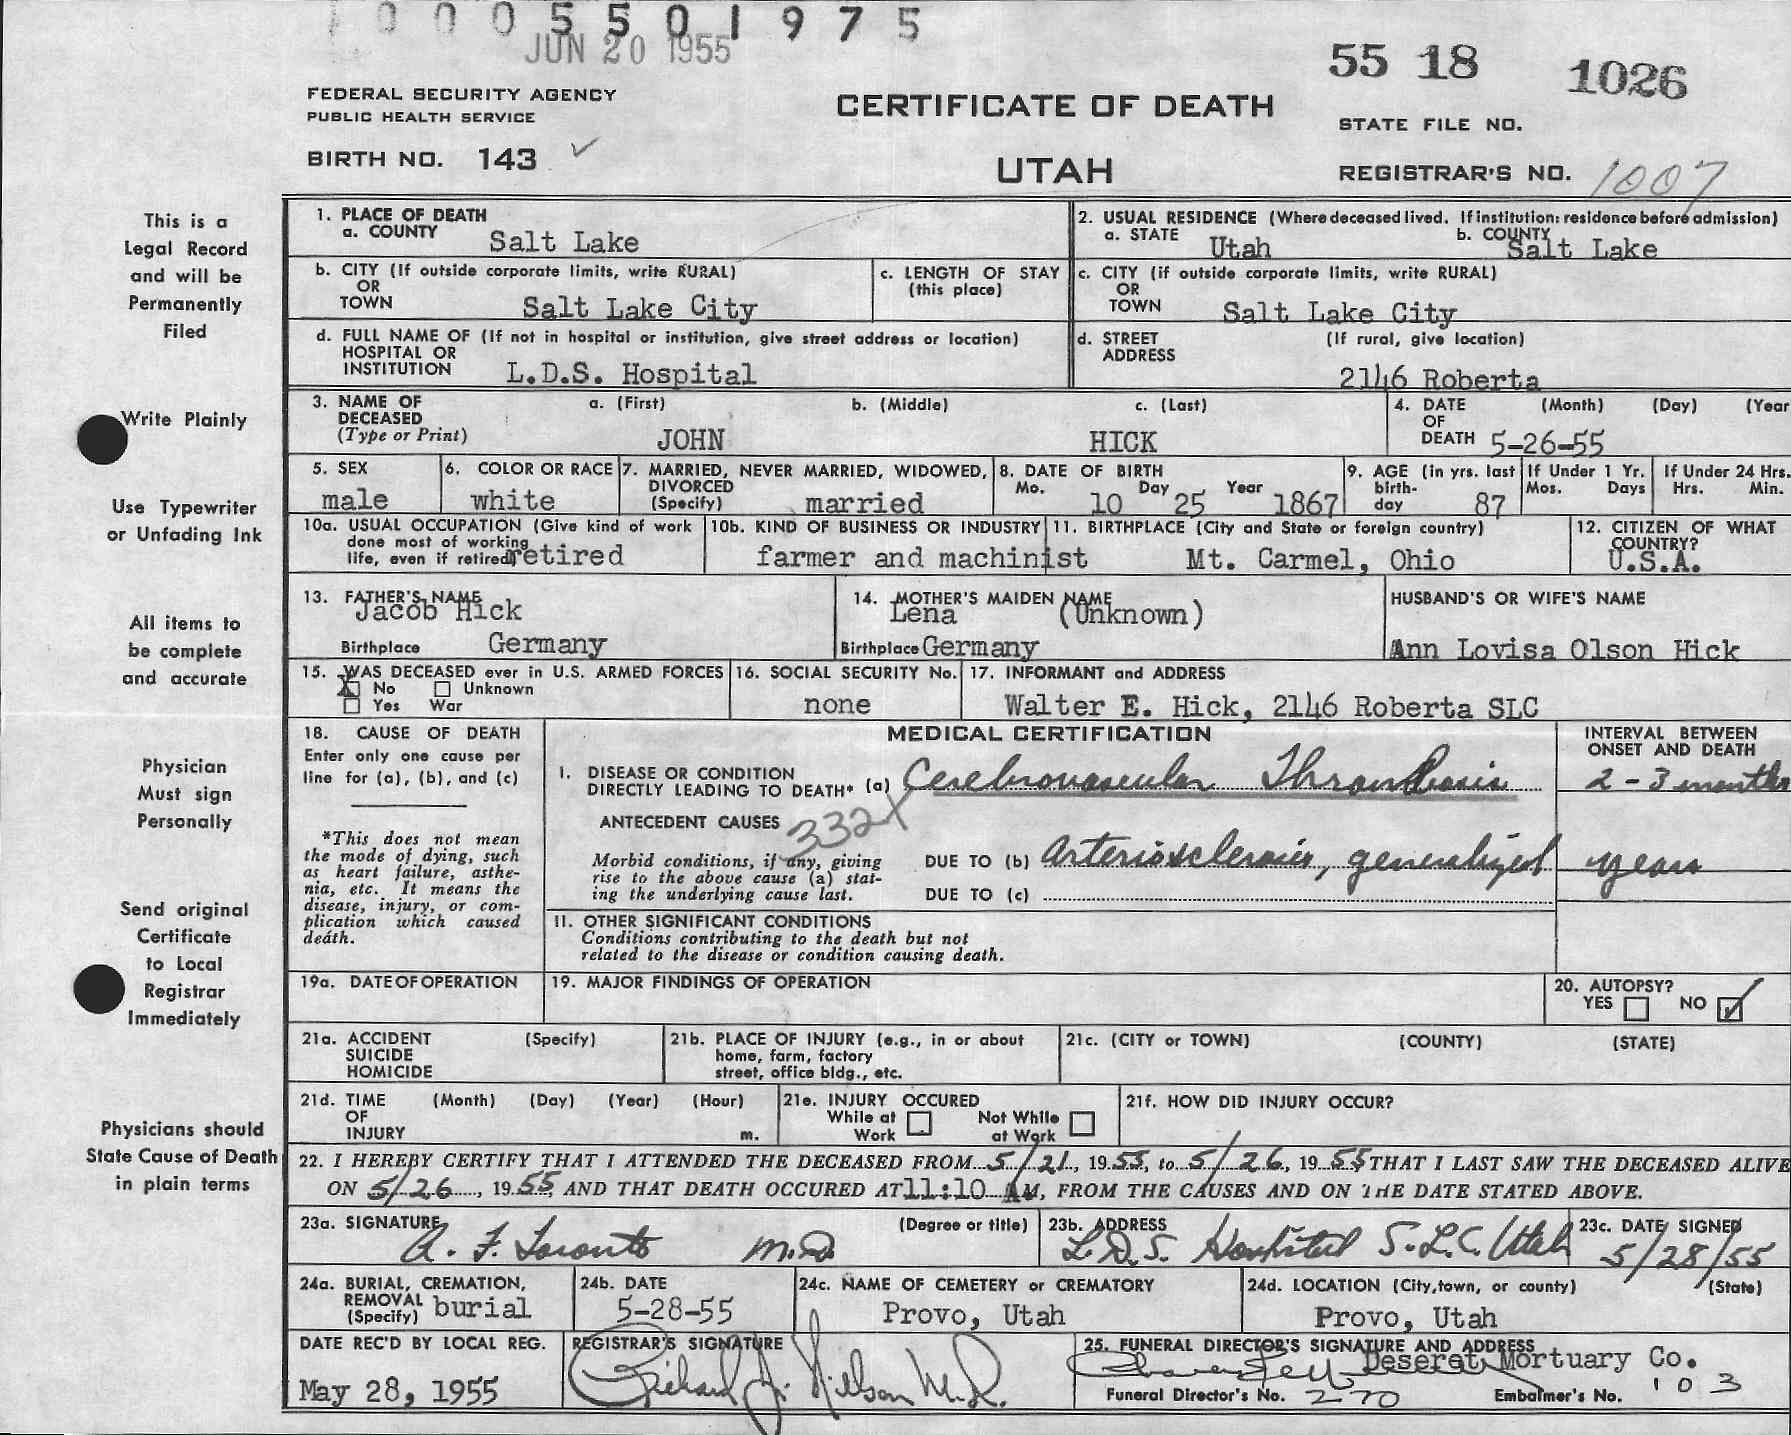 0 0 0 5 5 0 1 9 7 5
JUN 20 1955
55 18 1026
FEDERAL SECURITY AGENCY
PUBLIC HEALTH SERVICE
CERTIFICATE OF DEATH
STATE FILE NO.
BIRTH NO. 143
UTAH
REGISTRAR'S NO. 1007
This is a
Legal Record
and will be
Permanently
Filed
Write Plainly
Use Typewriter
or Unfading Ink
All items to
be complete
and accurate
Physician
Must sign
Personally
Send original
Certificate
to Local
Registrar
Immediately
Physicians should
State Cause of Death
in plain terms
1. PLACE OF DEATH
a. COUNTY Salt Lake
2. USUAL RESIDENCE (Where deceased lived. If institution: residence before admission)
a. STATE Utah b. COUNTY Salt Lake
b. CITY (If outside corporate limits, write RURAL)
OR
TOWN Salt Lake City
c. LENGTH OF STAY
(this place)
c. CITY (if outside corporate limits, write RURAL)
OR
TOWN Salt Lake City
d. FULL NAME OF (If not in hospital or institution, give street address or location)
HOSPITAL OR
INSTITUTION L.D.S. Hospital
d. STREET (If rural, give location)
ADDRESS
2146 Roberta
3. NAME OF DECEASED
(Type or Print)
a. (First) b. (Middle) c. (Last)
JOHN HICK
4. DATE (Month) (Day) (Year
OF
DEATH 5-26-55
5. SEX
male
6. COLOR OR RACE
white
7. MARRIED, NEVER MARRIED, WIDOWED,
DIVORCED
(Specify) married
8. DATE OF BIRTH
Mo. 10 Day 25 Year 1867
9. AGE (in yrs. last
birth-
day 87
If Under 1 Yr.
Mos. Days
If Under 24 Hrs.
Hrs. Min.
10a. USUAL OCCUPATION (Give kind of work
done most of working
life, even if retired) retired
10b. KIND OF BUSINESS OR INDUSTRY
farmer and machinist
11. BIRTHPLACE (City and State or foreign country)
Mt. Carmel, Ohio
12. CITIZEN OF WHAT
COUNTRY?
U.S.A.
13. FATHER'S NAME
Jacob Hick
Birthplace Germany
14. MOTHER'S MAIDEN NAME
Lena (Unknown)
Birthplace Germany
HUSBAND'S OR WIFE'S NAME
Ann Lovisa Olson Hick
15. WAS DECEASED ever in U.S. ARMED FORCES
X No Unknown
Yes War
16. SOCIAL SECURITY No.
none
17. INFORMANT and ADDRESS
Walter E. Hick, 2146 Roberta SLC
18. CAUSE OF DEATH
Enter only one cause per
line for (a), (b), and (c)
*This does not mean
the mode of dying, such
as heart failure, asthe-
nia, etc. It means the
disease, injury, or com-
plication which caused
death.
MEDICAL CERTIFICATION
INTERVAL BETWEEN
ONSET AND DEATH
I. DISEASE OR CONDITION
DIRECTLY LEADING TO DEATH* (a) Cerebrovascular Thrombosis 2 - 3 months
ANTECEDENT CAUSES 332X
Morbid conditions, if any, giving
rise to the above cause (a) stat-
ing the underlying cause last.
DUE TO (b) Arteriosclerosis, generalized years
DUE TO (c)
II. OTHER SIGNIFICANT CONDITIONS
Conditions contributing to the death but not
related to the disease or condition causing death.
19a. DATE OF OPERATION
19. MAJOR FINDINGS OF OPERATION
20. AUTOPSY?
YES NO ✓
21a. ACCIDENT (Specify)
SUICIDE
HOMICIDE
21b. PLACE OF INJURY (e.g., in or about
home, farm, factory
street, office bldg., etc.
21c. (CITY or TOWN) (COUNTY) (STATE)
21d. TIME (Month) (Day) (Year) (Hour)
OF
INJURY m.
21e. INJURY OCCURED
While at Work
Not While at Work
21f. HOW DID INJURY OCCUR?
22. I HEREBY CERTIFY THAT I ATTENDED THE DECEASED FROM 5/21, 1955, to 5/26, 1955 THAT I LAST SAW THE DECEASED ALIVE
ON 5/26, 1955, AND THAT DEATH OCCURED AT 11:10 AM, FROM THE CAUSES AND ON THE DATE STATED ABOVE.
23a. SIGNATURE (Degree or title)
A. F. Toronto M.D.
23b. ADDRESS
L.D.S. Hospital S.L.C. Utah
23c. DATE SIGNED
5/28/55
24a. BURIAL, CREMATION,
REMOVAL
(Specify) burial
24b. DATE
5-28-55
24c. NAME OF CEMETERY or CREMATORY
Provo, Utah
24d. LOCATION (City, town, or county) (State)
Provo, Utah
DATE REC'D BY LOCAL REG.
May 28, 1955
REGISTRAR'S SIGNATURE
Richard J. Nilson M.D.
25. FUNERAL DIRECTOR'S SIGNATURE AND ADDRESS
Deseret Mortuary Co.
Funeral Director's No. 270 Embalmer's No. 103